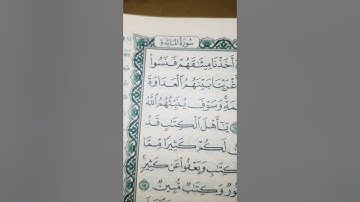 سُورَةُ المَائِدَةِ
أَخَذْنَا مِيثَٰقَهُمْ فَنَسُوا۟
غْرَيْنَا بَيْنَهُمُ ٱلْعَدَاوَةَ
مَةِ وَسَوْفَ يُنَبِّئُهُمُ ٱللَّهُ
يَٰٓأَهْلَ ٱلْكِتَٰبِ قَدْ
لَكُمْ كَثِيرًا مِّمَّا
كِتَٰبِ وَيَعْفُوا۟ عَن كَثِيرٍ
نُورٌ وَكِتَٰبٌ مُّبِينٌ